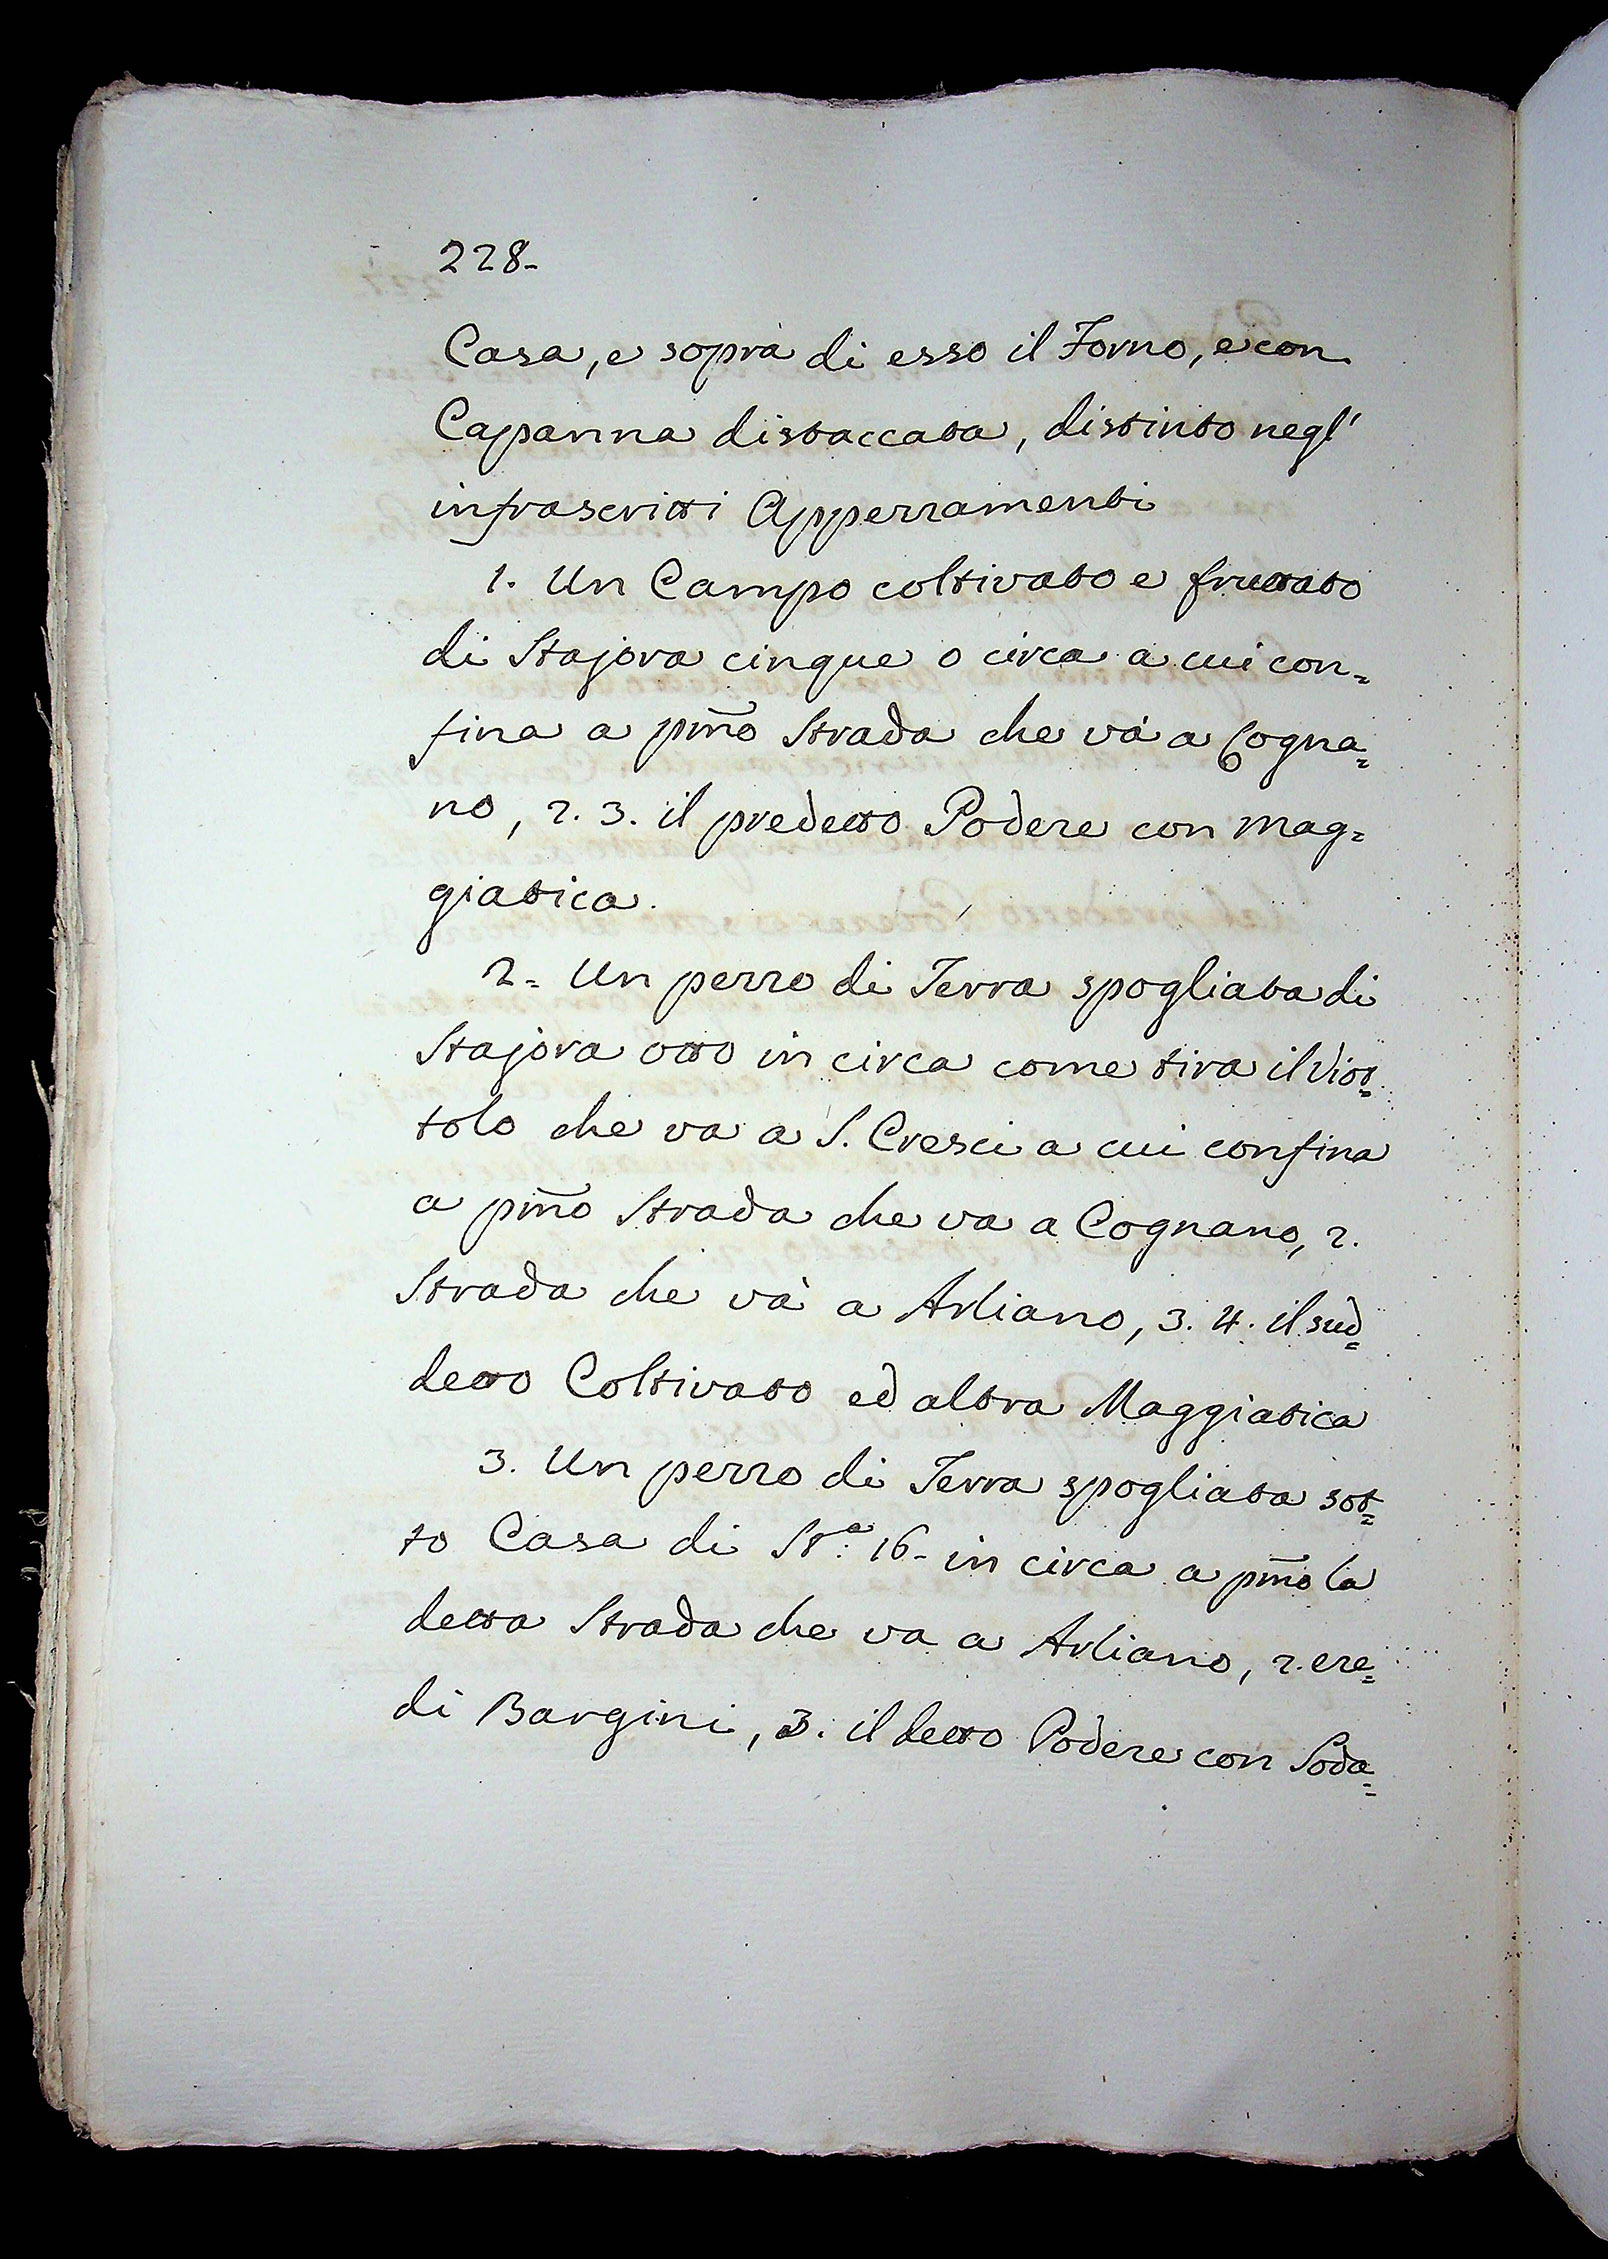 228-
Casa, e sopra di esso il Forno, e con
Capanna distaccata, distinto negl'
infrascritti Appezzamenti
1. Un Campo coltivato e fruttato
di Stajora cinque o circa a cui con=
fina a pm̃o Strada che và a Cogna=
no, 2. 3. il predetto Podere con mag=
giatica.
2= Un pezzo di Terra spogliata di
Stajora otto in circa come tira il Viot=
tolo che va a S. Cresci a cui confina
a pm̃o Strada che va a Cognano, 2.
Strada che và a Arliano, 3. 4. il sud=
detto Coltivato ed altra Maggiatica
3. Un pezzo di Terra spogliata sot=
to Casa di St.ª 16- in circa a pm̃o la
detta Strada che va a Arliano, 2. ere=
di Bargini, 3. il detto Podere con Soda=